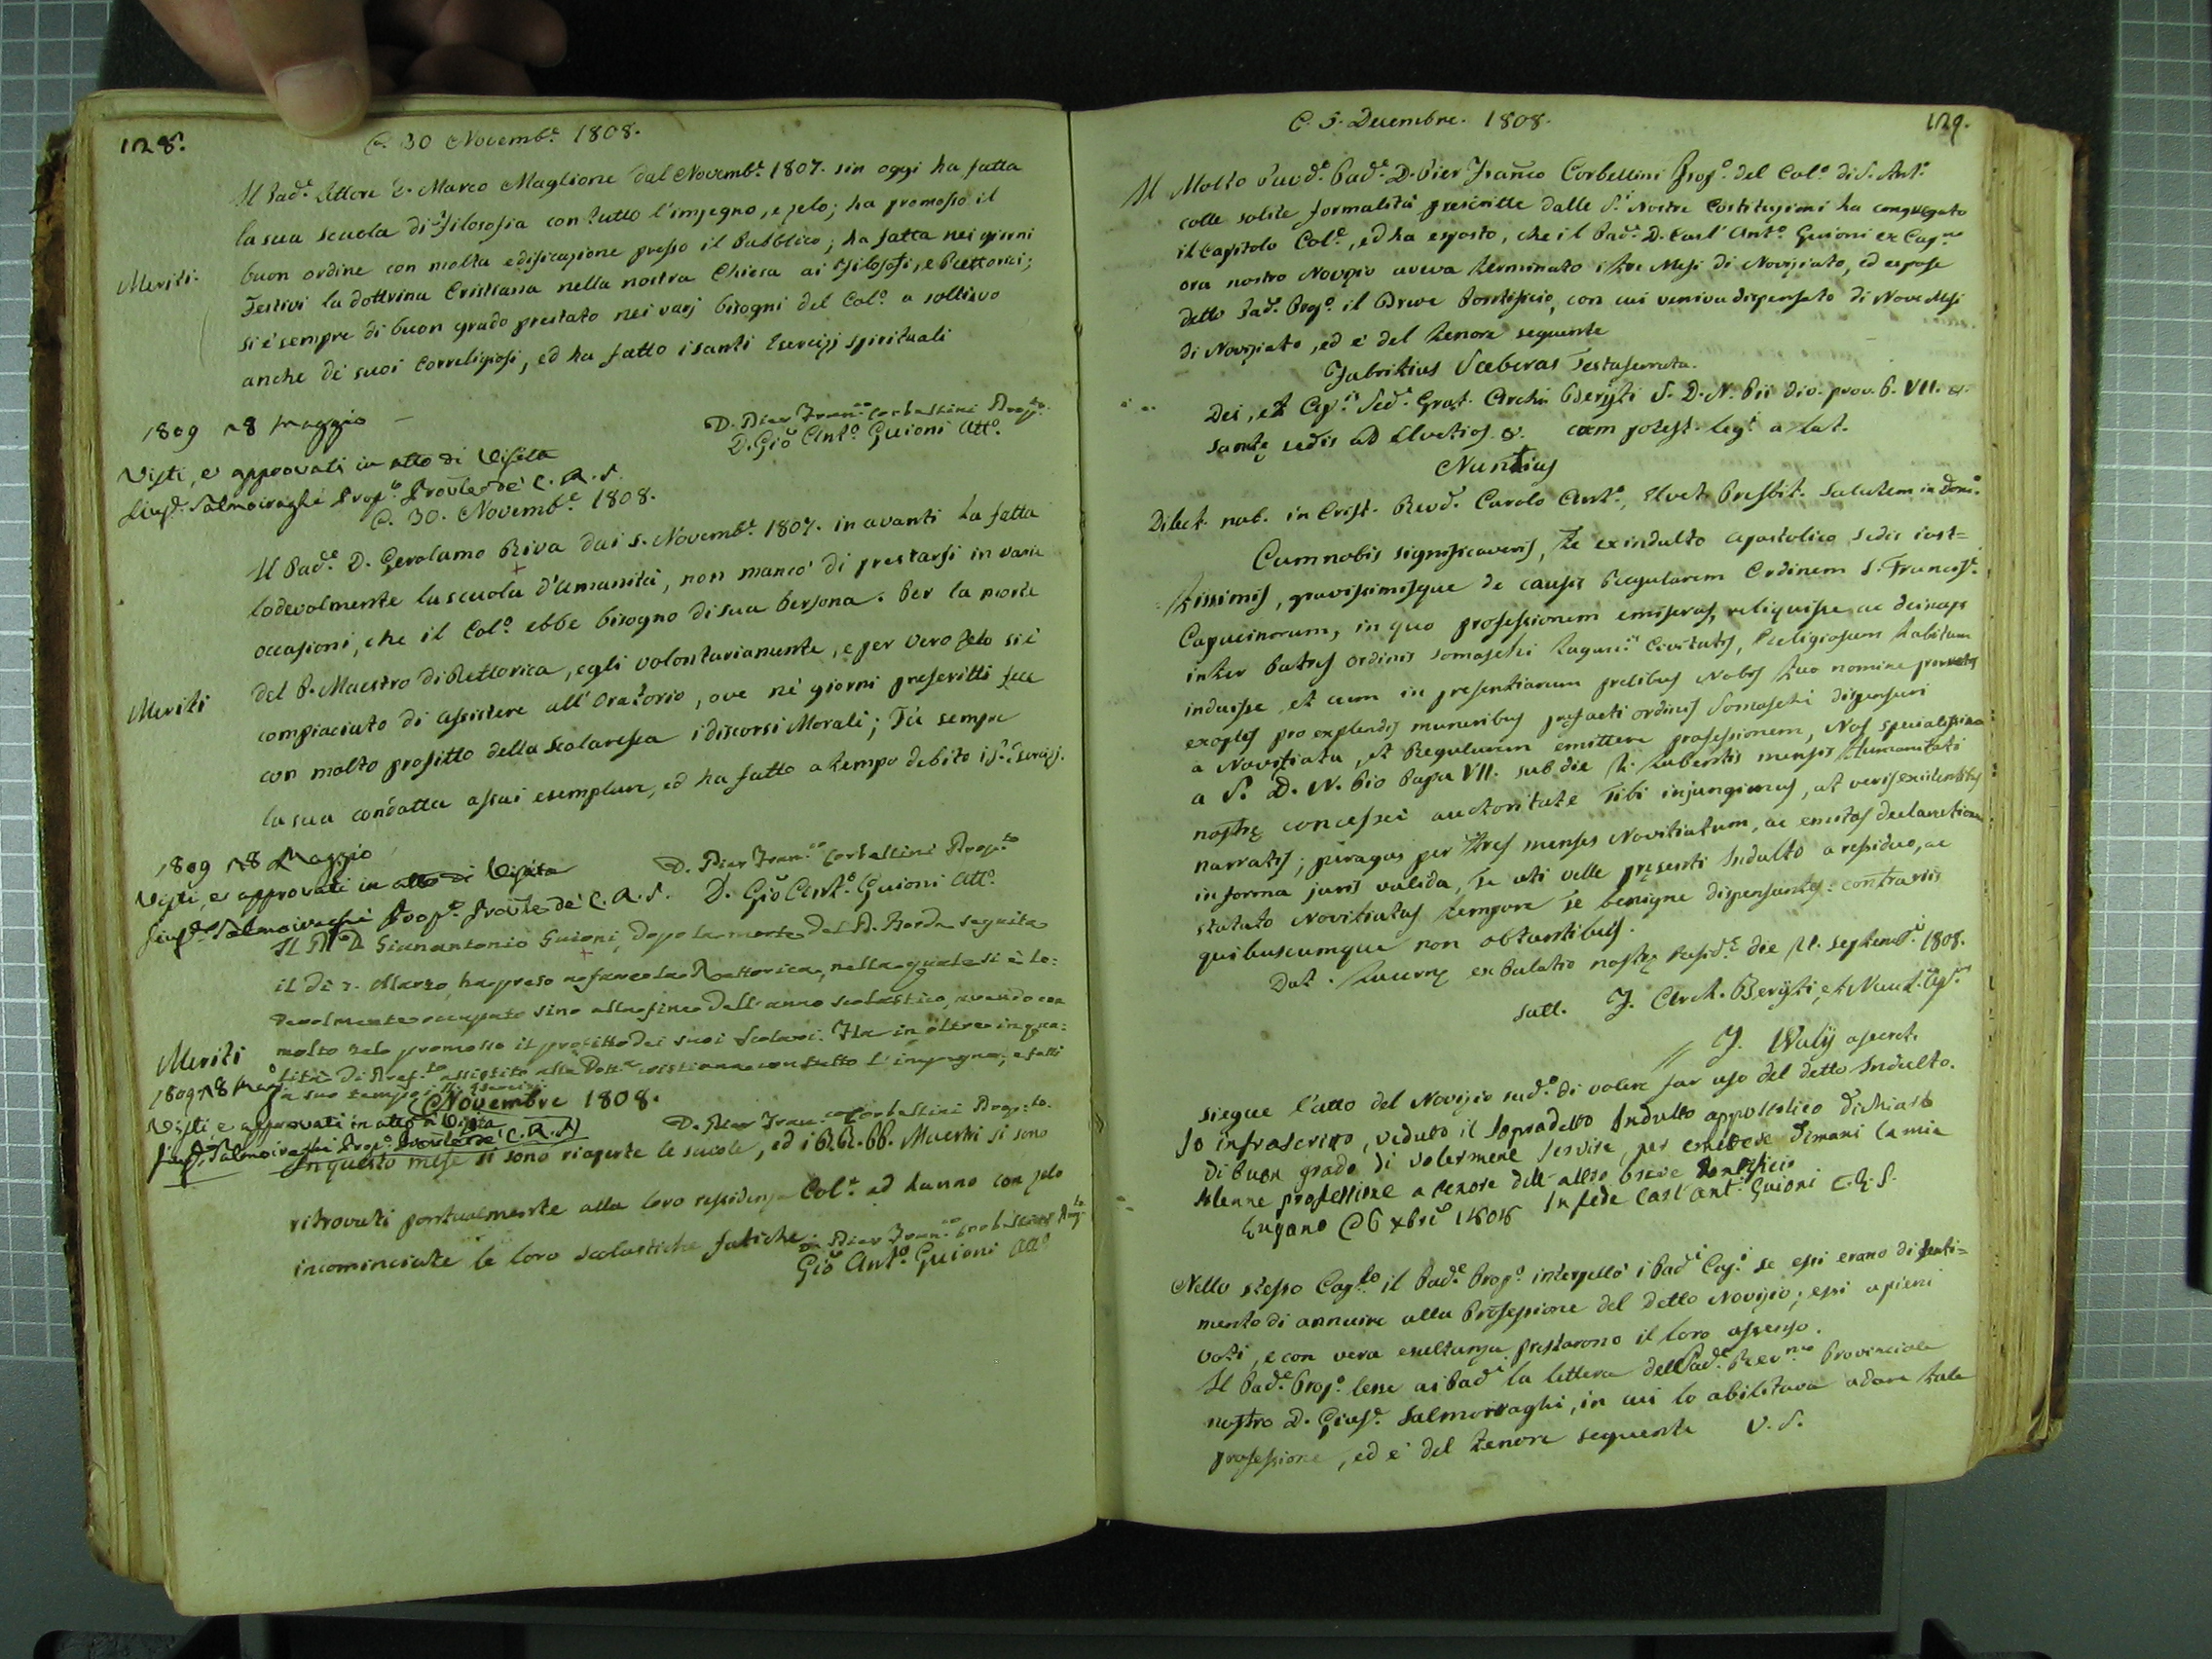 128.
C. 30 Novemb.e 1808.
Il Pad.e Lettore D. Marco Maglione dal Novemb.e 1807. sin oggi ha fatta
la sua scuola di Filosofia con tutto l'impegno, e zelo; ha promosso il
buon ordine con molta edificazione presso il Pubblico; ha fatta nei giorni
Meriti.
Festivi la dottrina Cristiana nella nostra Chiesa ai Filosofi, e Rettorici;
si è sempre di buon grado prestato nei varj bisogni del Col.o a sollievo
anche de' suoi Correligiosi, ed ha fatto i santi Esercizj spirituali
D. Pier Fran.co Corbellini Prop.to
1809 28 Maggio
D. Gio Ant.o Guioni Att.o
Visti, e approvati in atto di Visita
Giusp.e Salmoiraghi Prop.to Prov.le de' C. R. S.
C. 30. Novemb.e 1808.
Il Pad.e D. Gerolamo Riva dai 5. Novemb.e 1807. in avanti ha fatta
lodevolmente la scuola d'Umanità, non mancò di prestarsi in varie
occasioni, che il Col.o ebbe bisogno di sua Persona. Per la morte
del P. Maestro di Rettorica, egli volontariamente, e per vero zelo si è
Meriti
compiaciuto di assistere all'Oratorio, ove nè giorni prescritti fece
con molto profitto della Scolaresca i discorsi Morali; Fù sempre
la sua condotta assai esemplare, ed ha fatto a tempo debito i S. Esercizj.
1809 28 Maggio
D. Pier Fran.co Corbellini Prop.to
Visti, e approvati in atto di Visita
D. Gio Ant.o Guioni Att.o
Giusp.e Salmoiraghi Prop.to Prov.le de' C. R. S.
Il P. D. Gianantonio Guioni, dopo la morte del P. Borda seguita
il dì 7. Marzo, ha preso a fare la Rettorica, nella quale si è lo-
devolmente occupato sino alla fine dell'anno scolastico, avendo con
molto zelo promosso il profitto dei suoi Scolari. Ha in oltre in qua-
Meriti
lità di Pref.to assistito alla Dott.a cristiana con tutto l'impegno; e fatti
1809 28 Mag.o
a suo tempo gli Esercizj.
Novembre 1808.
D. Pier Fran.co Corbellini Prop.to
Visti e approvati in atto di Visita
Giusp.e Salmoiraghi Prop.to Prov.le de' C. R. S.
In questo mese si sono riaperte le scuole, ed i RR. PP. Maestri si sono
ritrovati pontualmente alla loro residenza Col.e ed hanno con zelo
incominciate le loro scolastiche fatiche.
D. Pier Fran.co Corbellini Prop.to
Gio Ant.o Guioni Att.o
129.
C. 5. Decembre. 1808.
Il Molto Revd.e Pad.e D. Pier Fran.co Corbellini Prop.o del Col.o di S. Ant.o
colle solite formalità prescritte dalle S.i Nostre Costituzioni ha congregato
il Capitolo Col.e, ed ha esposto, che il Pad.e D. Carl'Ant.o Guioni ex Cap.no
ora nostro Novizio aveva terminato i tre Mesi di Noviziato, ed espose
detto Pad.e Prop.o il Breve Pontificio, con cui veniva dispensato di Nove Mesi
di Noviziato, ed è del tenore seguente
Fabritius Sceberas Testaferrata.
Dei, et Ap.ce Sed.s Grat. Archi. Beryti S. D. N. Pii div. prov. P. VII. &.
Sanctę sedis ad Elvetios &. cum potest. leg.i a lat.
Nuntius
Dilect. nob. in Crist. Revd. Carolo Ant.o, Elvet. Presbit. Salutem in Dom.o
Cum nobis significaveris, te ex indulto apostolico sedis just-
tissimis, gravissimisque de causis Regularem Ordinem S. Francisc.
Capucinorum, in quo professionem emiseras, reliquisse ac deinceps
inter Patres Ordinis Somaschi Lugani Civitatis, Religiosum habitum
induisse, et cum in presentiarum precibus Nobis tuo nomine porrectis
exoptes pro explendis muneribus prefacti ordinis Somaschi dispensari
a Novitiatu, et Regularem emittere professionem, Nos specialissima
a S. D. N. Pio Papa VII. sub die labentis mensis Humanitati
nostrę concessa auctoritate Tibi injungimus, ut veris existentibus
narratis; peragas per tres menses Novitiatum, ac emitas declarationem
in forma juris valida, Te uti velle pręsenti Indulto a residuo, ac
statuto Novitiatus tempore Te benigne dispensantes: contrariis
quibuscumque non obstantibus.
Dat. Lucernę ex Palatio nostrę resid.e die 12. Septemb.i 1808.
F. Arch. Beryti, et Nunt. Ap.
J. Waly asecret.
siegue l'atto del Novizio sud.o di volere far uso del detto Indulto.
Io infrascritto, veduto il sopradetto Indulto appostolico dichiaro
di buon grado di volermene servire, per emettere dimani la mia
solenne professione a tenore dell'altro breve Pontificio
Lugano C 6 Xbre 1808 In fede Carl'Ant.o Guioni C. R. S.
Nello stesso Cap.lo il Pad.e Prop.o interpellò i Pad.i Cap.i se essi erano di senti-
mento di annuire alla Professione del detto Novizio; essi a pieni
voti, e con vera esultanza prestarono il loro assenso.
Il Pad.e Prop.o lesse ai Pad.i la lettera dell Pad.e Rev.mo Provinciale
nostro D. Giusp.e Salmoiraghi, in cui lo abilitava a dare tale
professione, ed è del tenore seguente V. S.